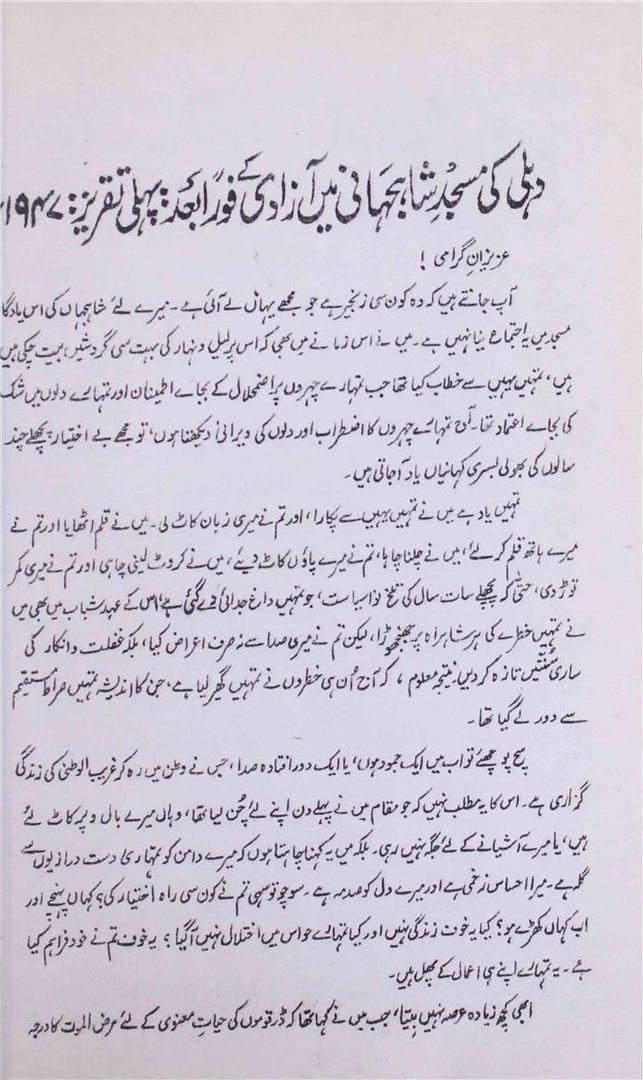 دہلی کی مسجدِ شاہجہانی میں آزادی کے فوراً بعد: پہلی تقریر: ۱۹۴۷ء
عزیزانِ گرامی!
آپ جانتے ہیں کہ وہ کون سی زنجیر ہے جو مجھے یہاں لے آئی ہے۔ میرے لئے شاہجہاں کی اس یادگا
مسجد میں یہ اجتماع نیا نہیں ہے۔ میں نے اس زمانے میں بھی کہ اس پر لیل و نہار کی بہت سی گردشیں بیت چکی ہیں
ہیں، تمہیں یہیں سے خطاب کیا تھا جب تمہارے چہروں پر اضمحلال کے بجائے اطمینان اور تمہارے دلوں میں شک
کی بجائے اعتماد تھا۔ آج تمہارے چہروں کا اضطراب اور دلوں کی ویرانی دیکھتا ہوں، تو مجھے بے اختیار پچھلے چند
سالوں کی بھولی بسری کہانیاں یاد آ جاتی ہیں۔
تمہیں یاد ہے میں نے تمہیں یہیں سے پکارا، اور تم نے میری زبان کاٹ لی۔ میں نے قلم اٹھایا اور تم نے
میرے ہاتھ قلم کر لئے، میں نے چلنا چاہا، تم نے میرے پاؤں کاٹ دیئے، میں نے کروٹ لینی چاہی اور تم نے میری کمر
توڑ دی، حتیٰ کہ پچھلے سات سال کی تلخ نوا سیاست، جو تمہیں داغِ جدائی دے گئی ہے، اس کے عہدِ شباب میں بھی میں
نے تمہیں خطرے کی ہر شاہراہ پر جھنجھوڑا، لیکن تم نے میری صدا سے نہ صرف اعراض کیا، بلکہ غفلت و انکار کی
ساری سُنتیں تازہ کر دیں۔ نتیجہ معلوم، کہ آج اُن ہی خطروں نے تمہیں گھیر لیا ہے، جن کا اندیشہ تمہیں صراطِ مستقیم
سے دور لے گیا تھا۔
سچ پوچھئے تو اب میں ایک جمود ہوں، یا ایک دور افتادہ صدا، جس نے وطن میں رہ کر غریب الوطنی کی زندگی
گزاری ہے۔ اس کا یہ مطلب نہیں کہ جو مقام میں نے پہلے دن اپنے لئے چُن لیا تھا، وہاں میرے بال و پر کاٹ لئے
ہیں، یا میرے آشیانے کے لئے جگہ نہیں رہی۔ بلکہ میں یہ کہنا چاہتا ہوں کہ میرے دامن کو تمہاری دست درازیوں سے
گلہ ہے۔ میرا احساس زخمی ہے اور میرے دل کو صدمہ ہے۔ سوچو تو سہی تم نے کون سی راہ اختیار کی؟ کہاں پہنچے اور
اب کہاں کھڑے ہو؟ کیا یہ خوف زندگی نہیں اور کیا تمہارے حواس میں اختلال نہیں آ گیا؟ یہ خوف تم نے خود فراہم کیا
ہے۔ یہ تمہارے اپنے ہی اعمال کے پھل ہیں۔
ابھی کچھ زیادہ عرصہ نہیں بیتا، جب میں نے کہا تھا کہ ڈر قوموں کی حیاتِ معنوی کے لئے مرض الموت کا درجہ